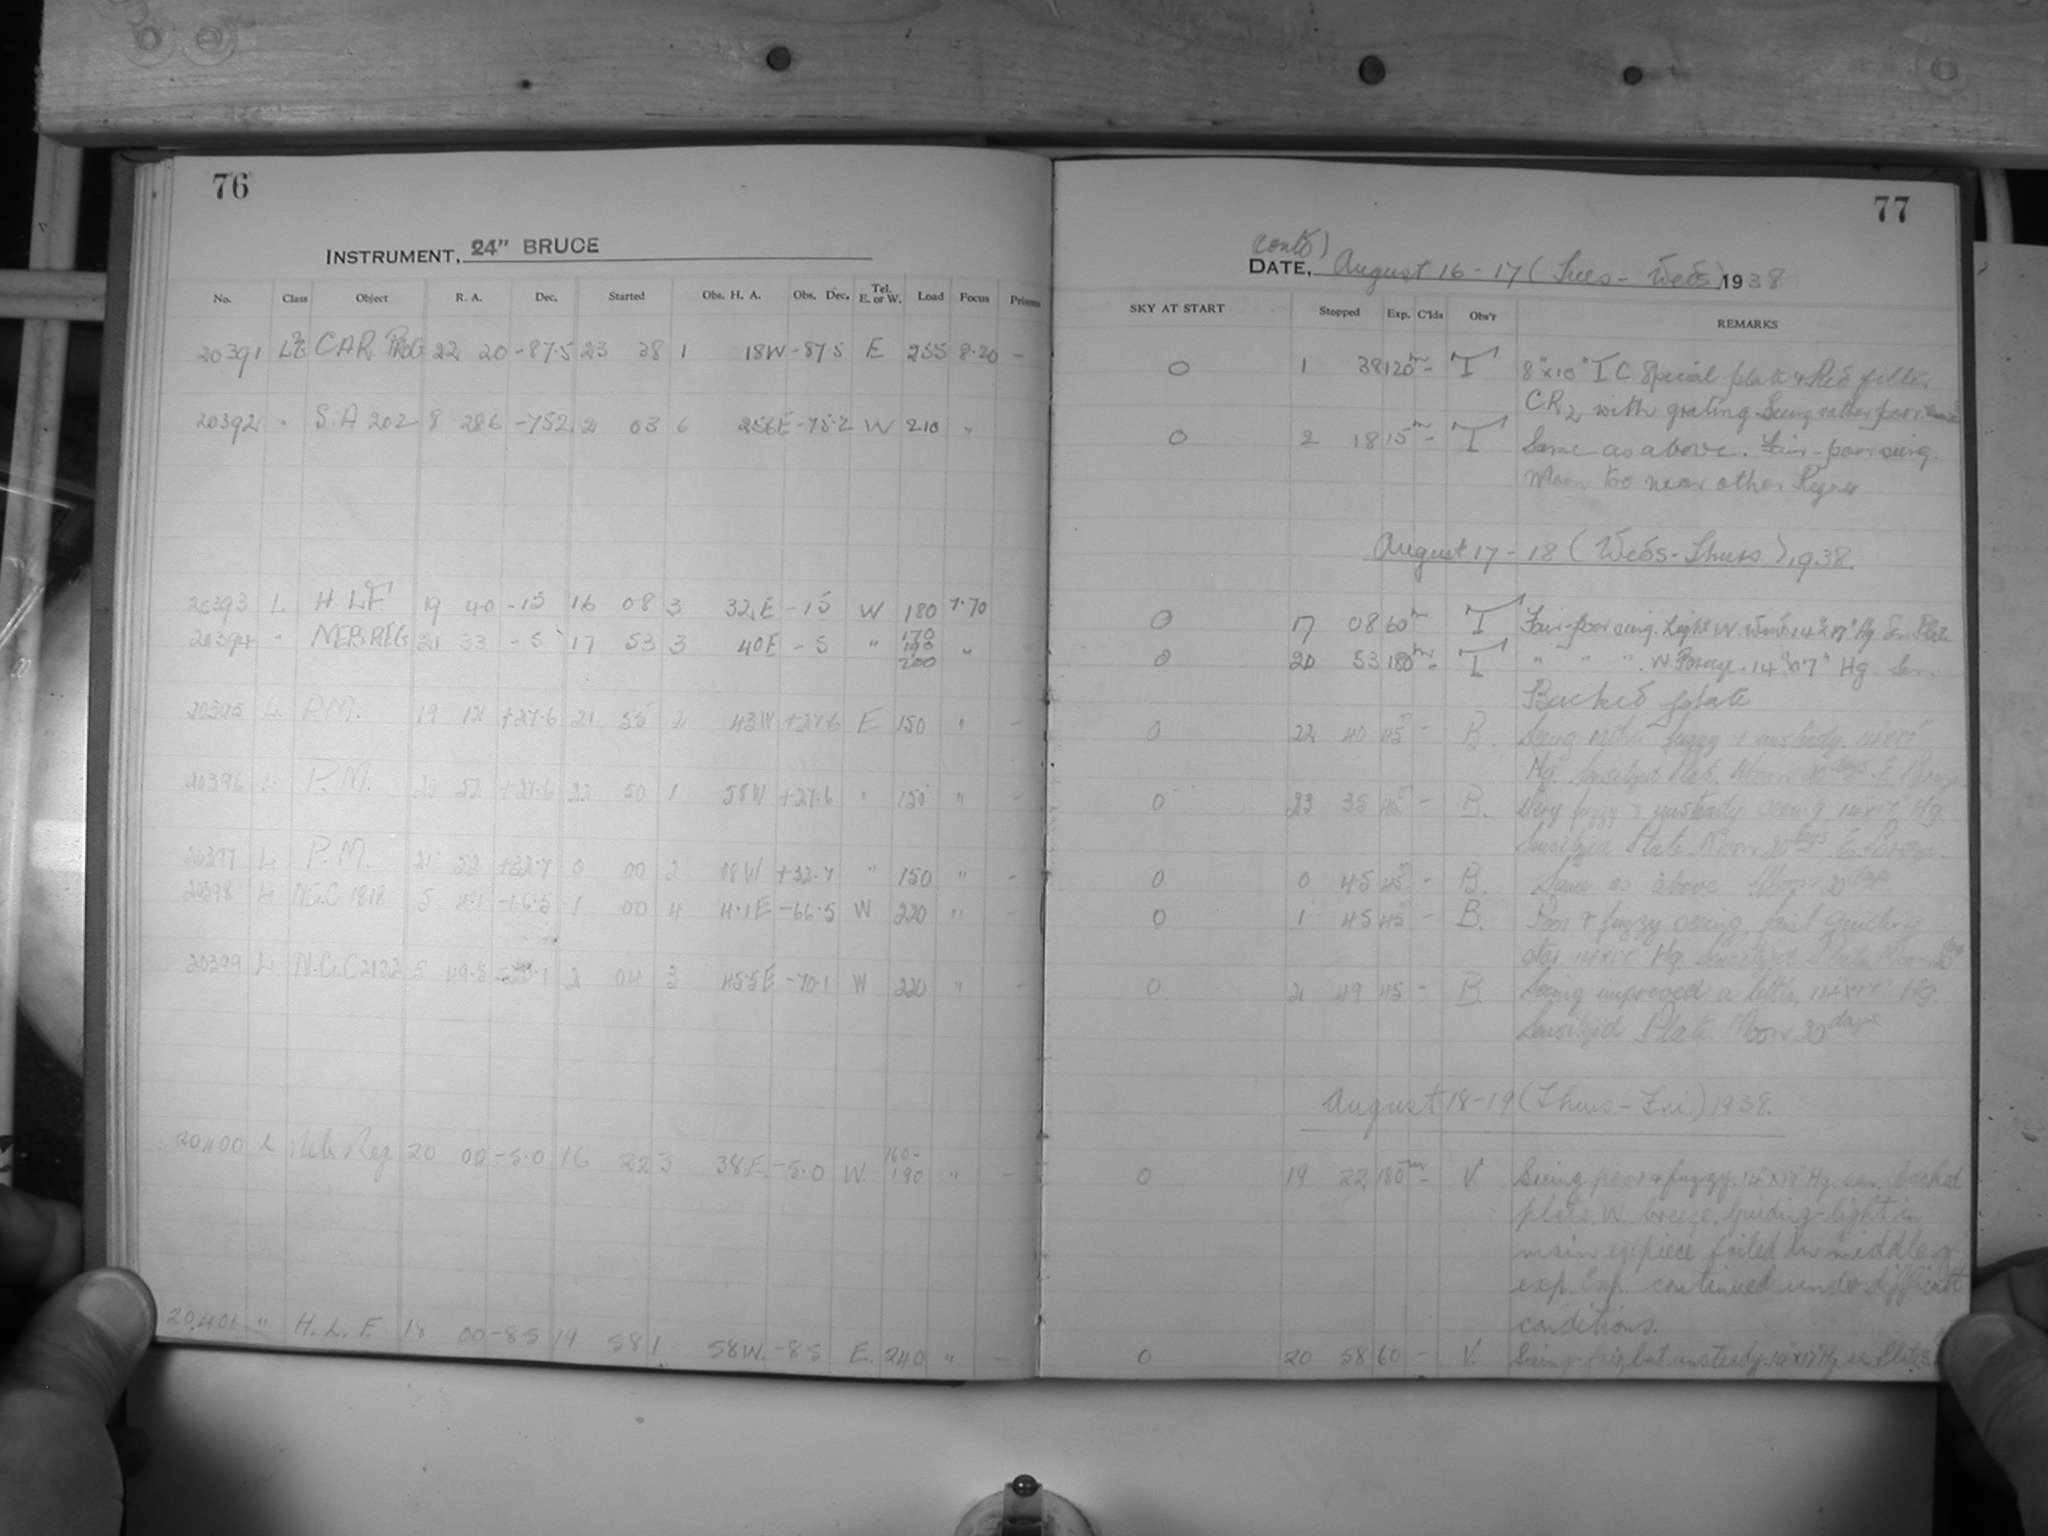 76
INSTRUMENT, 24" BRUCE
No. Class Object R. A. Dec. Started Obs. H. A. Obs. Dec. Tel. E. or W. Load Focus Prisms
20391 CAP. PROG 22 20 -87.5 23 38 1 18W -87.5 E 255 8.20 -
20392 " S.A 202 8 28.6 -75.2 2 03 6 256E -75.2 W 210 "
20393 L H. L.F. 19 40 -15 16 08 3 32E -15 W 180 7.70
20394 " NEB REG 21 33 -5 17 53 3 40E -5 " 170 190 200 "
20395 L P.M. 19 12 +27.6 21 55 2 43W +27.6 E 150 " -
20396 L P.M. 20 52 +27.6 22 50 1 58W +27.6 " 150 " -
20397 L P.M. 21 52 +32.7 0 00 2 08W +32.7 " 150 " -
20398 L N.G.C 1818 5 4.1 -66.5 1 00 4 4.1E -66.5 W 220 " -
20399 L N.G.C 2122 5 49.5 -70.1 2 04 3 45.5E -70.1 W 220 " -
20,400 L Neb. Reg. 20 00 -5.0 16 22 3 38E. -5.0 W. 160-190 " -
20,401 " H. L. F. 18 00 -85 19 58 1 58W. -85 E. 240 " -
77
(contd)
DATE, August 16-17 (Tues- Weds) 1938
SKY AT START Stopped Exp. C'lds Obs'r REMARKS
0 1 38 120m - T 8"x10" I C Special plate & Red filter
CR2, with grating. Seeing rather poor.
0 2 18 15m - T Same as above. Fair-poor seeing.
Moon too near other Regions
August 17-18 (Weds-Thurs.), 1938.
0 17 08 60m T Fair-poor seeing. Light W wind. 14"x17" Hg Sen Plate
0 20 53 180m - T " " " W Breeze. 14"x17" Hg Sen.
Backed plate
0 22 40 45m - B. Seeing rather fuzzy & unsteady. 14x17"
Hg. Sensitized Plate. Moon 20 days. E. Breeze
0 23 35 45m - B. Very fuzzy & unsteady seeing, 14x17" Hg.
Sensitized Plate. Moon 20 days E. Breeze.
0 0 45 45m - B. Same as above Moon 20 days
0 1 45 45 - B. Poor & fuzzy seeing, faint Guiding
star 14x17" Hg. Sensitized Plate Moon 20 days
0 2 49 45 - B. Seeing improved a little. 14x17" Hg.
Sensitized Plate. Moon 20 days
August 18-19 (Thurs-Fri.) 1938.
0 19 22 180m - V. Seeing poor & fuzzy. 14"x17" Hg. sen. backed
plate. W. breeze. Guiding-light in
main eyepiece failed in middle of
exp. Exp. continued under difficult
conditions.
0 20 58 60 - V. Seeing-fair, but unsteady. 14"x17" Hg. sen. Plate.